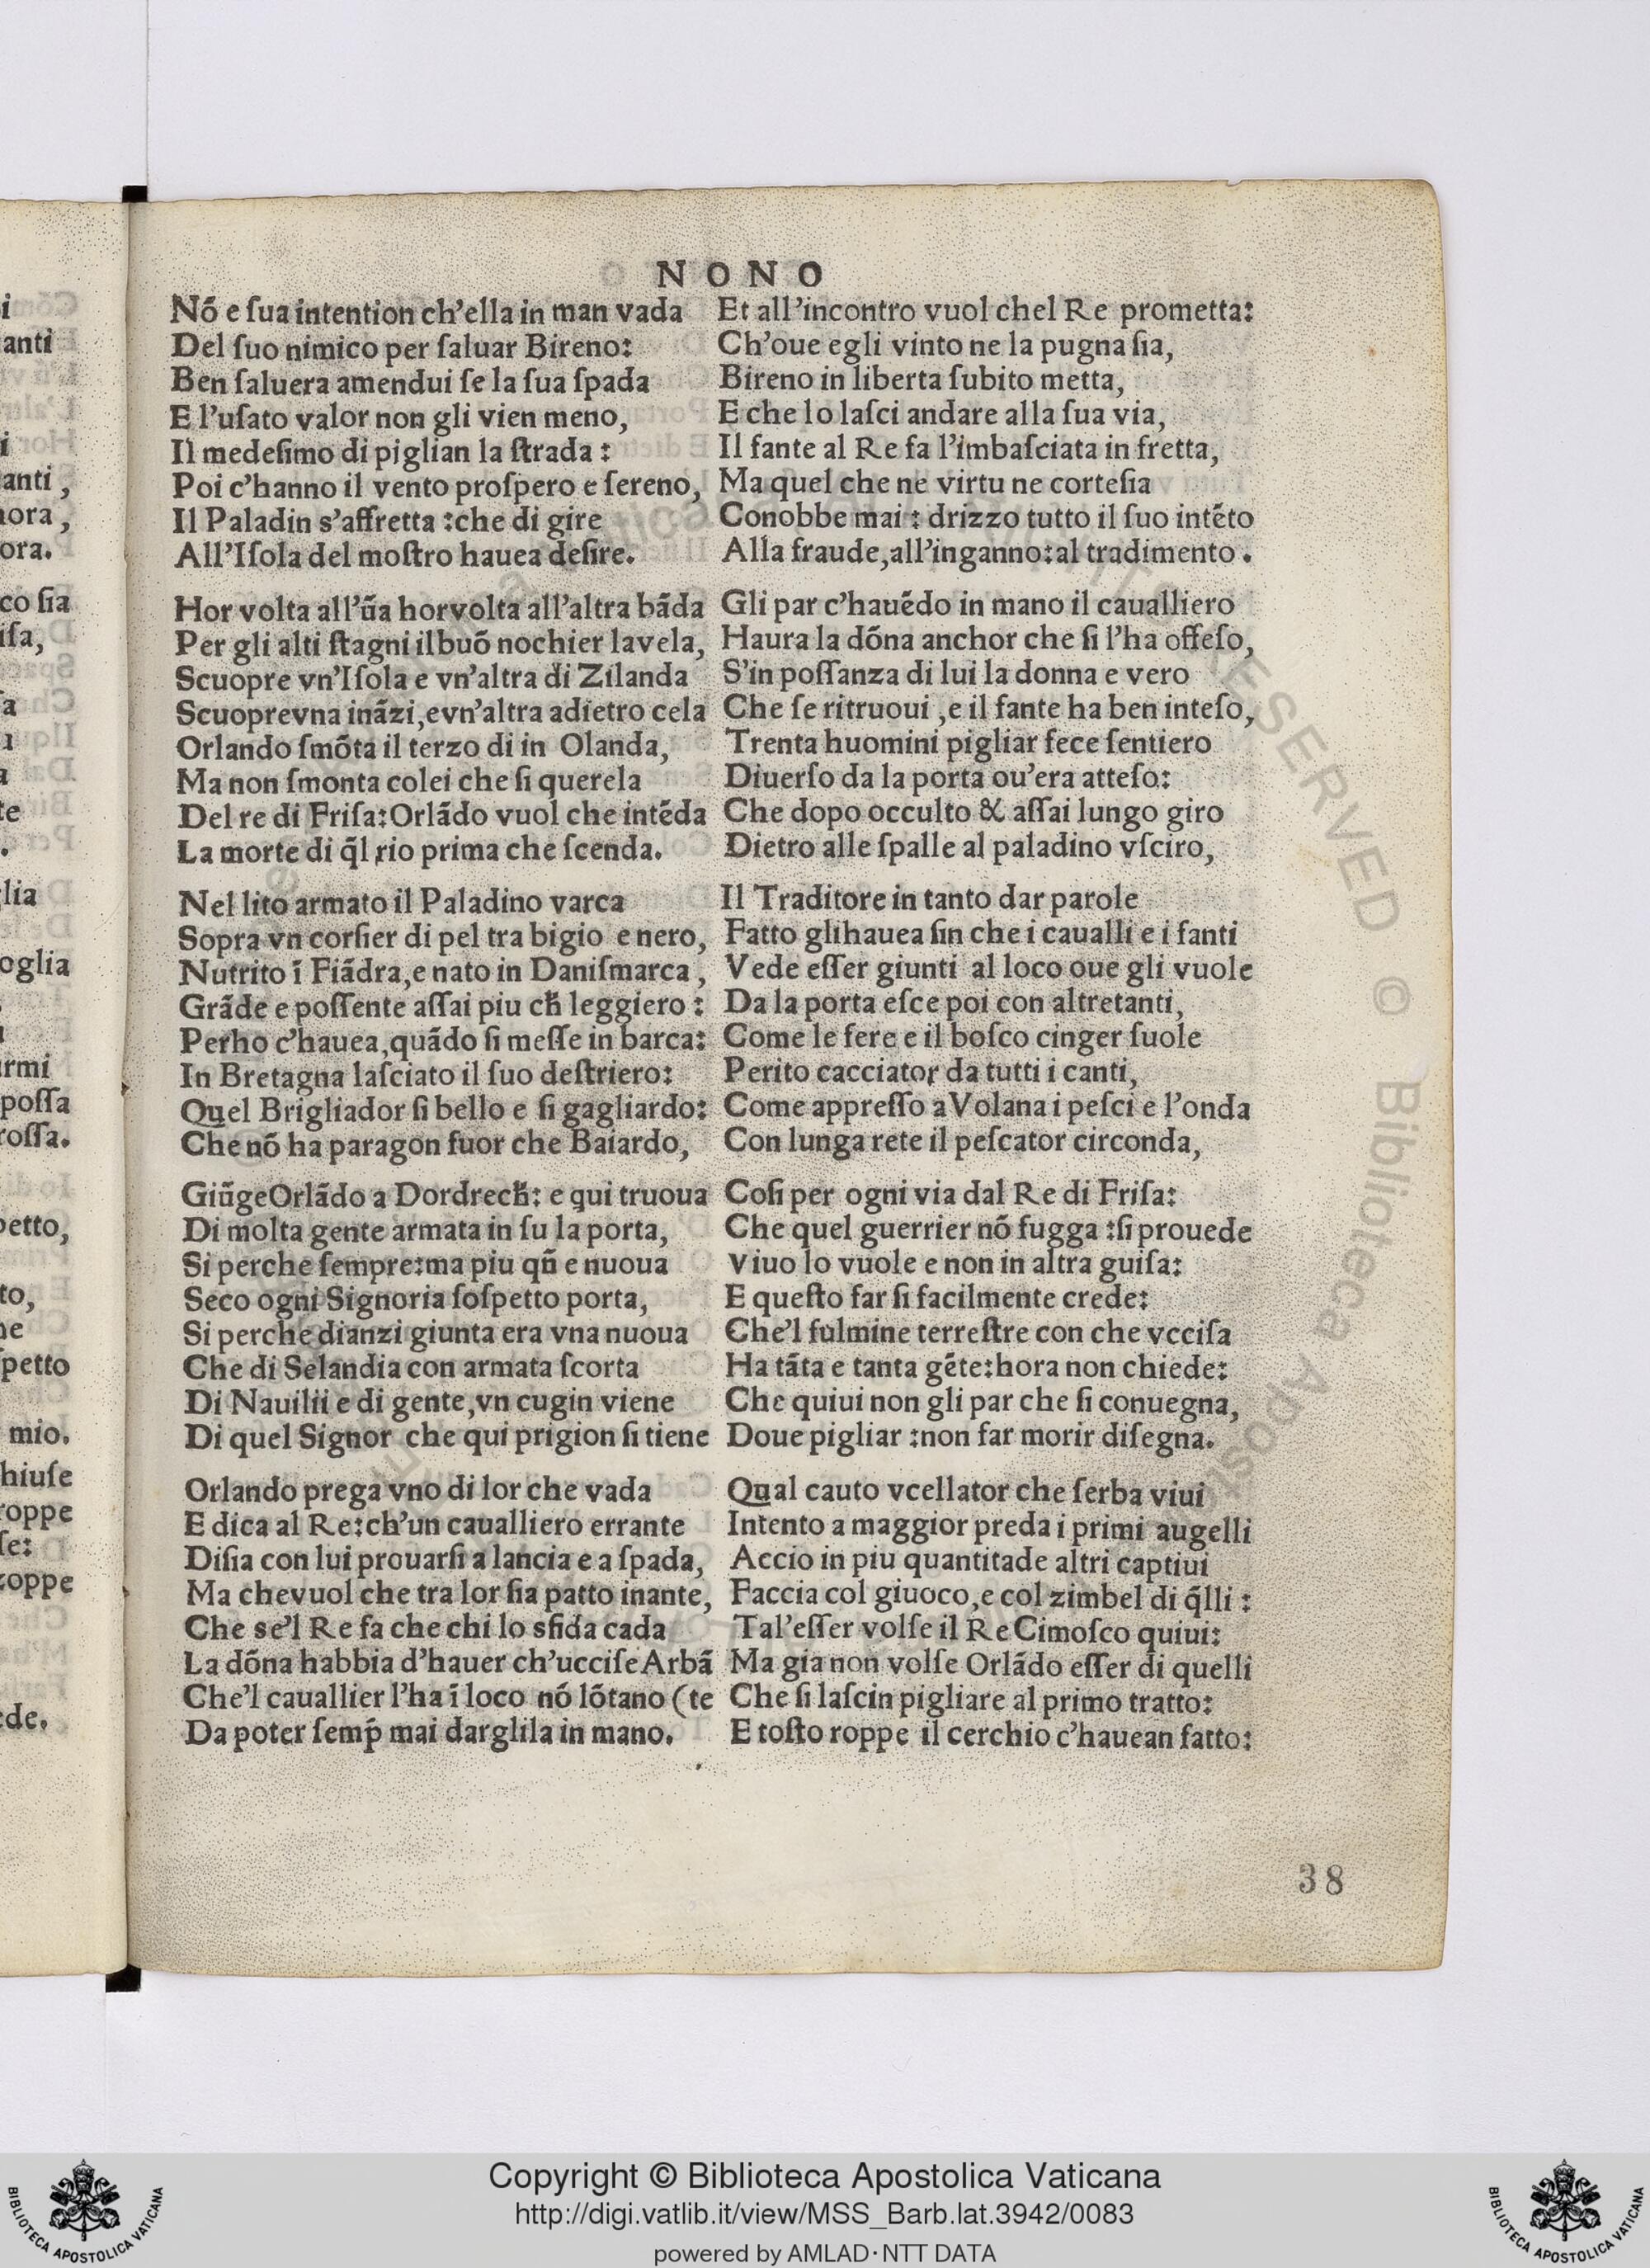 NONO
Nõ e ſua intention ch'ella in man vada
Del ſuo nimico per ſaluar Bireno:
Ben ſaluera amendui ſe la ſua ſpada
E l'uſato valor non gli vien meno,
Il medeſimo di piglian la ſtrada :
Poi c'hanno il vento proſpero e ſereno,
Il Paladin s'affretta :che di gire
All'Iſola del moſtro hauea deſire.
Hor volta all'ũa horvolta all'altra bãda
Per gli alti ſtagni ilbuõ nochier lavela,
Scuopre vn'Iſola e vn'altra di Zilanda
Scuoprevna inãzi,evn'altra adietro cela
Orlando ſmõta il terzo di in Olanda,
Ma non ſmonta colei che ſi querela
Del re di Friſa:Orlãdo vuol che intẽda
La morte di q̃l rio prima che ſcenda.
Nel lito armato il Paladino varca
Sopra vn corſier di pel tra bigio e nero,
Nutrito ĩ Fiãdra,e nato in Daniſmarca,
Grãde e poſſente aſſai piu ch̃ leggiero :
Perho c'hauea,quãdo ſi meſſe in barca:
In Bretagna laſciato il ſuo deſtriero:
Quel Brigliador ſi bello e ſi gagliardo:
Che nõ ha paragon fuor che Baiardo,
GiũgeOrlãdo a Dordrech̃: e qui truoua
Di molta gente armata in ſu la porta,
Si perche ſempre:ma piu qñ e nuoua
Seco ogni Signoria ſoſpetto porta,
Si perche dianzi giunta era vna nuoua
Che di Selandia con armata ſcorta
Di Nauilii e di gente,vn cugin viene
Di quel Signor che qui prigion ſi tiene
Orlando prega vno di lor che vada
E dica al Re:ch'un caualliero errante
Diſia con lui prouarſi a lancia e a ſpada,
Ma chevuol che tra lor ſia patto inante,
Che se'l Re fa che chi lo sfida cada
La dõna habbia d'hauer ch'ucciſeArbã
Che'l cauallier l'ha ĩ loco nõ lõtano (te
Da poter ſemp̃ mai darglila in mano.
Et all'incontro vuol chel Re prometta:
Ch'oue egli vinto ne la pugna ſia,
Bireno in liberta ſubito metta,
E che lo laſci andare alla ſua via,
Il fante al Re fa l'imbaſciata in fretta,
Ma quel che ne virtu ne corteſia
Conobbe mai : drizzo tutto il ſuo intẽto
Alla fraude,all'inganno:al tradimento.
Gli par c'hauẽdo in mano il caualliero
Haura la dõna anchor che ſi l'ha offeſo,
S'in poſſanza di lui la donna e vero
Che ſe ritruoui ,e il fante ha ben inteſo,
Trenta huomini pigliar fece ſentiero
Diuerſo da la porta ou'era atteſo:
Che dopo occulto & aſſai lungo giro
Dietro alle ſpalle al paladino vſciro,
Il Traditore in tanto dar parole
Fatto glihauea ſin che i caualli e i fanti
Vede eſſer giunti al loco oue gli vuole
Da la porta eſce poi con altretanti,
Come le fere e il boſco cinger ſuole
Perito cacciator da tutti i canti,
Come appreſſo a Volana i peſci e l'onda
Con lunga rete il peſcator circonda,
Coſi per ogni via dal Re di Friſa:
Che quel guerrier nõ fugga :ſi prouede
Viuo lo vuole e non in altra guiſa:
E queſto far ſi facilmente crede:
Che'l fulmine terreſtre con che vcciſa
Ha tãta e tanta gẽte:hora non chiede:
Che quiui non gli par che ſi conuegna,
Doue pigliar :non far morir diſegna.
Qual cauto vcellator che ſerba viui
Intento a maggior preda i primi augelli
Accio in piu quantitade altri captiui
Faccia col giuoco,e col zimbel di q̃lli :
Tal'eſſer volſe il Re Cimoſco quiui:
Ma gia non volſe Orlãdo eſſer di quelli
Che ſi laſcin pigliare al primo tratto:
E toſto roppe il cerchio c'hauean fatto:
38
Copyright © Biblioteca Apostolica Vaticana
http://digi.vatlib.it/view/MSS_Barb.lat.3942/0083
powered by AMLAD·NTT DATA